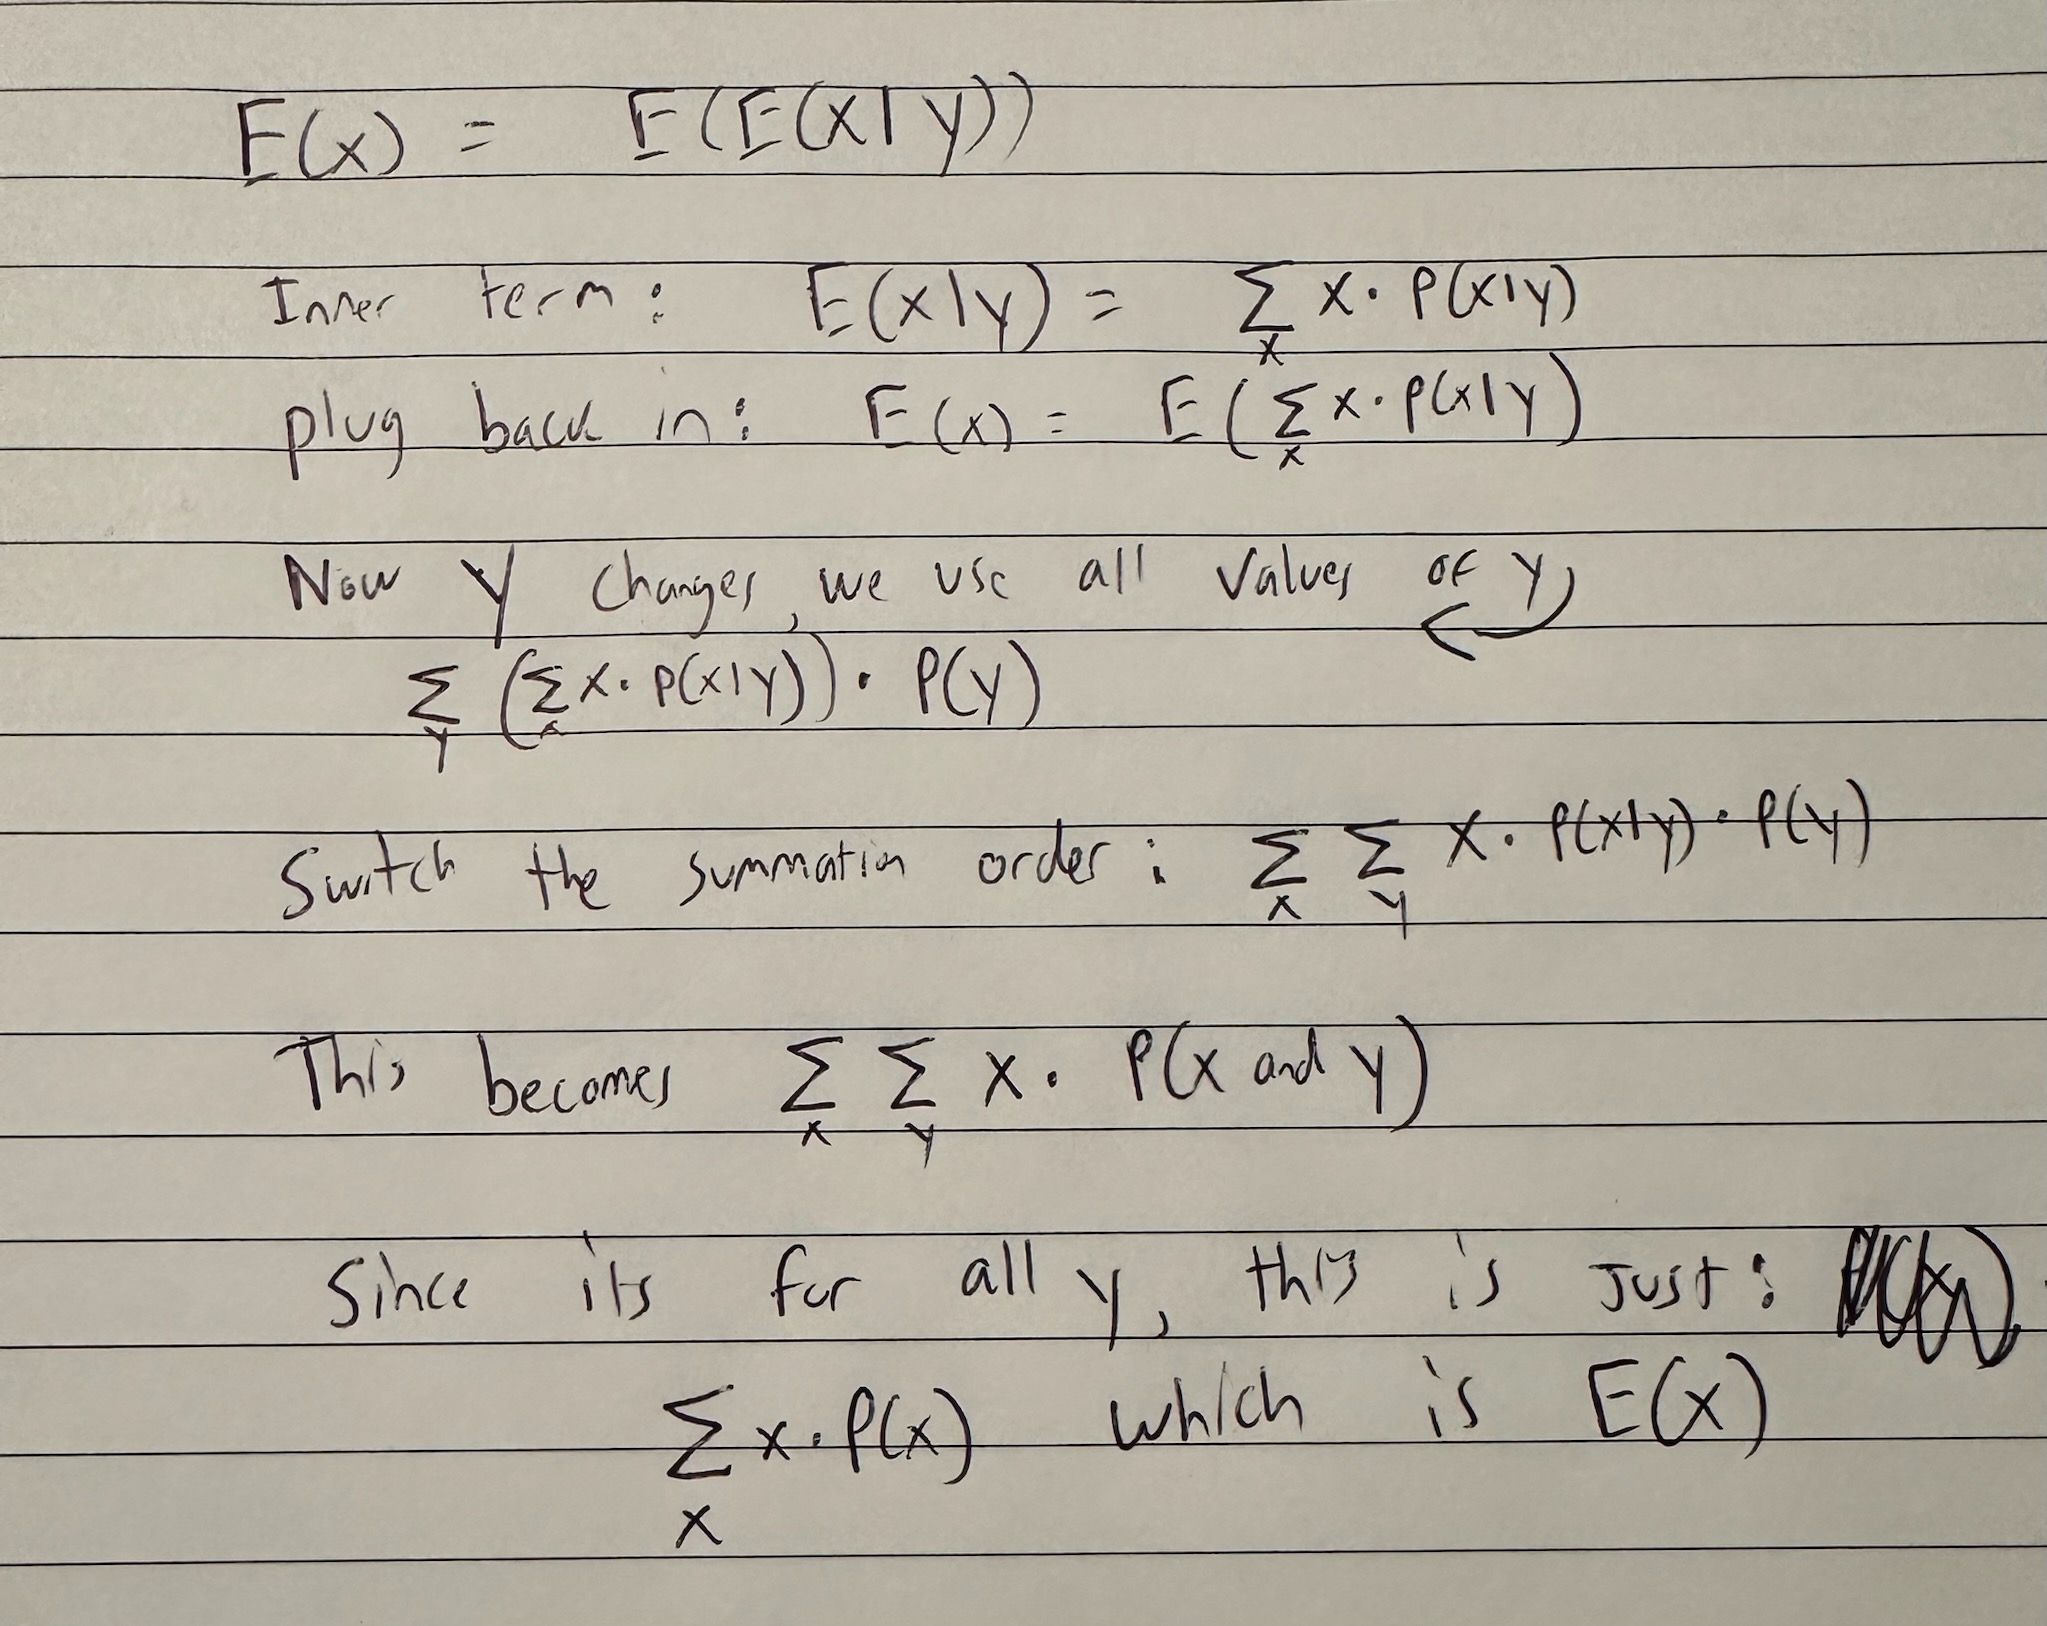 E(x) = E(E(x|y))
Inner term: E(x|y) = Σ_x x · P(x|y)
plug back in: E(x) = E(Σ_x x · P(x|y)
Now y changes, we use all values of y
Σ_y (Σ_x x · P(x|y)) · P(y)
Switch the summation order: Σ_x Σ_y x · P(x|y) · P(y)
This becomes Σ_x Σ_y x · P(x and y)
Since its for all y, this is just:
Σ_x x · P(x) which is E(x)